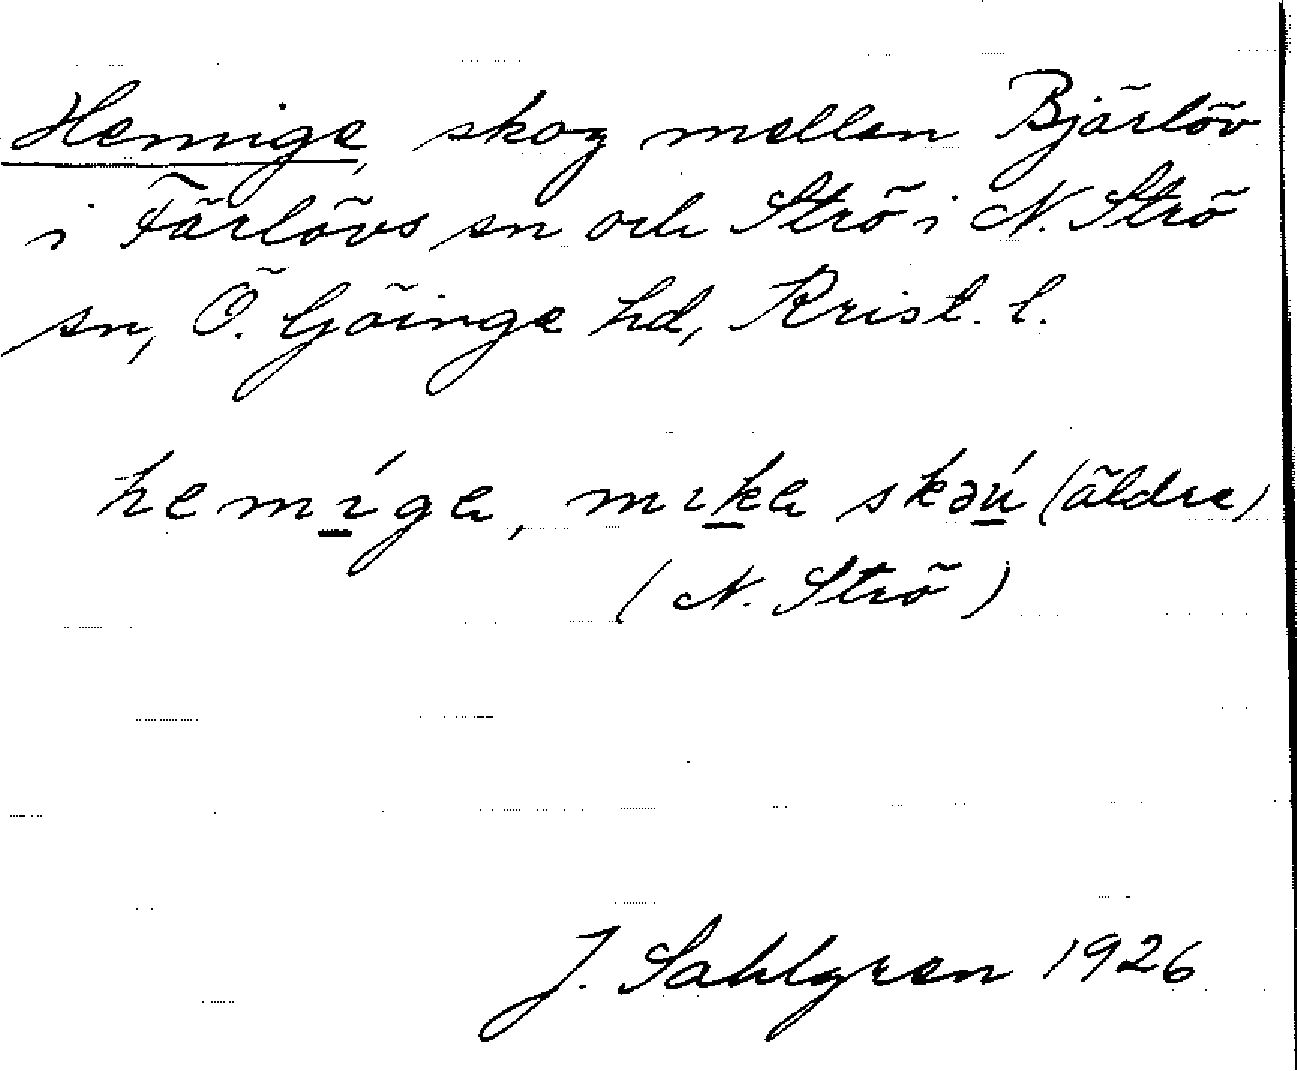 Hemige, skog mellan Bjärlöv
i Färlövs sn och Strö i N. Strö
sn, Ö. Göinge hd, Krist. l.
hemíga, mıka skəú (äldre)
(N. Strö)
J. Sahlgren 1926